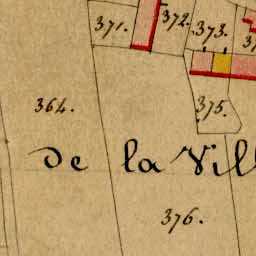 371. 372. 373.
364. 375.
de la Vill
376.